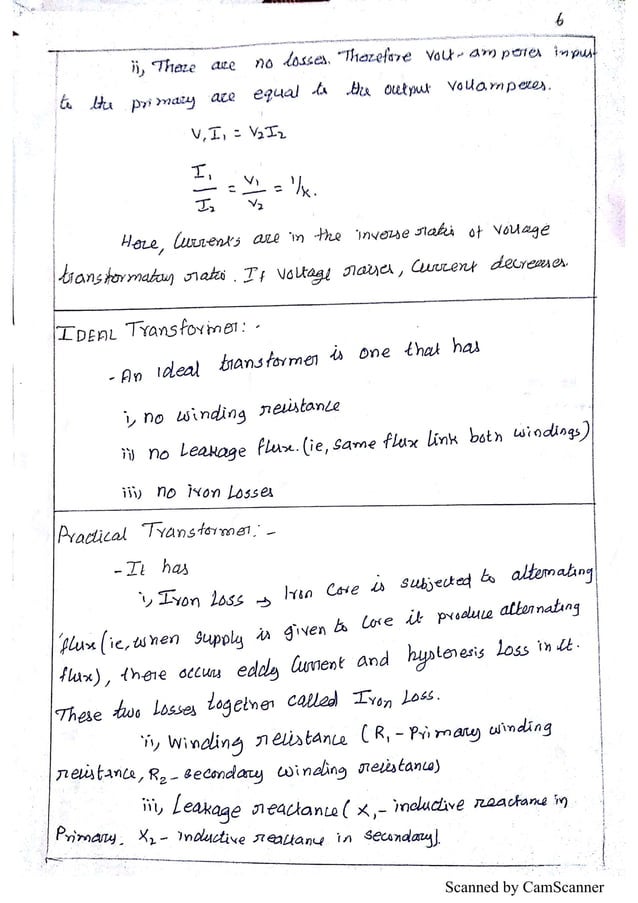 6
ii, There are no losses. Therefore Volt-amperes input
to the primary are equal to the output Voltamperes.
V₁I₁ = V₂I₂
I₁/I₂ = V₁/V₂ = 1/K.
Here, Currents are in the inverse ratio of Voltage
transformation ratio. If Voltage raises, Current decreases.
IDEAL Transformer: -
- An ideal transformer is one that has
i, no winding resistance
ii) no Leakage flux. (ie, same flux link both windings)
iii) no iron Losses
Practical Transformer: -
- It has
i, Iron Loss → Iron Core is subjected to alternating
flux (ie, when supply is given to Core it produce alternating
flux), there occurs eddy Current and hysteresis Loss in it.
These two Losses together called Iron Loss.
ii, Winding resistance (R₁ - Primary winding
resistance, R₂ - secondary winding resistance)
iii, Leakage reactance ( X₁ - inductive reactance in
Primary. X₂ - inductive reactance in secondary).
Scanned by CamScanner